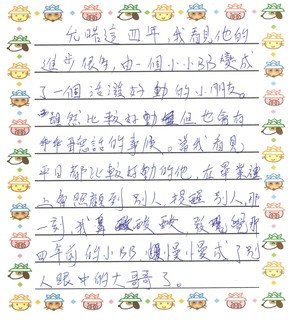 允晞這四年，我看見他的
進步很多，由一個小小BB變成
了一個活潑好動的小朋友。
雖然比較好動，但也會有
乖乖聽話的時候。當我看見，
平日都比較好動的他，在畢業禮
上會照顧到別人，提醒別人，那
一刻，我真 發現
四年前的小BB，慢慢成了別
人眼中的大哥哥了。